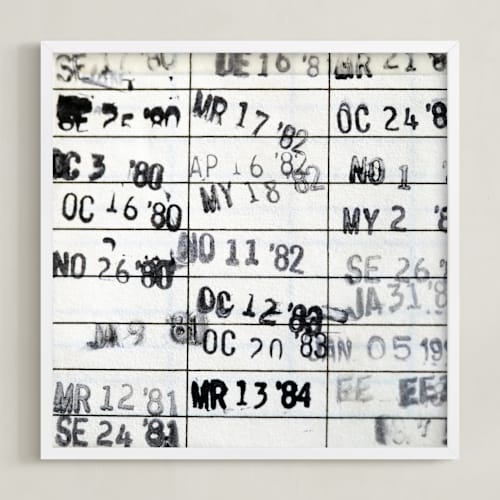 DE 16 '8
MR 21 '8
SE 25 '80
MR 17 '82
OC 24 '8
OC 3 '80
AP 16 '82
NO 1
OC 16 '80
MY 18 '82
MY 2 '8
NO 26 '80
NO 11 '82
SE 26 '
JA 31 '8
OC 12 '83
JA 9 '81
OC 20 '83
JAN 05 199
MR 12 '81
MR 13 '84
SE 24 '81